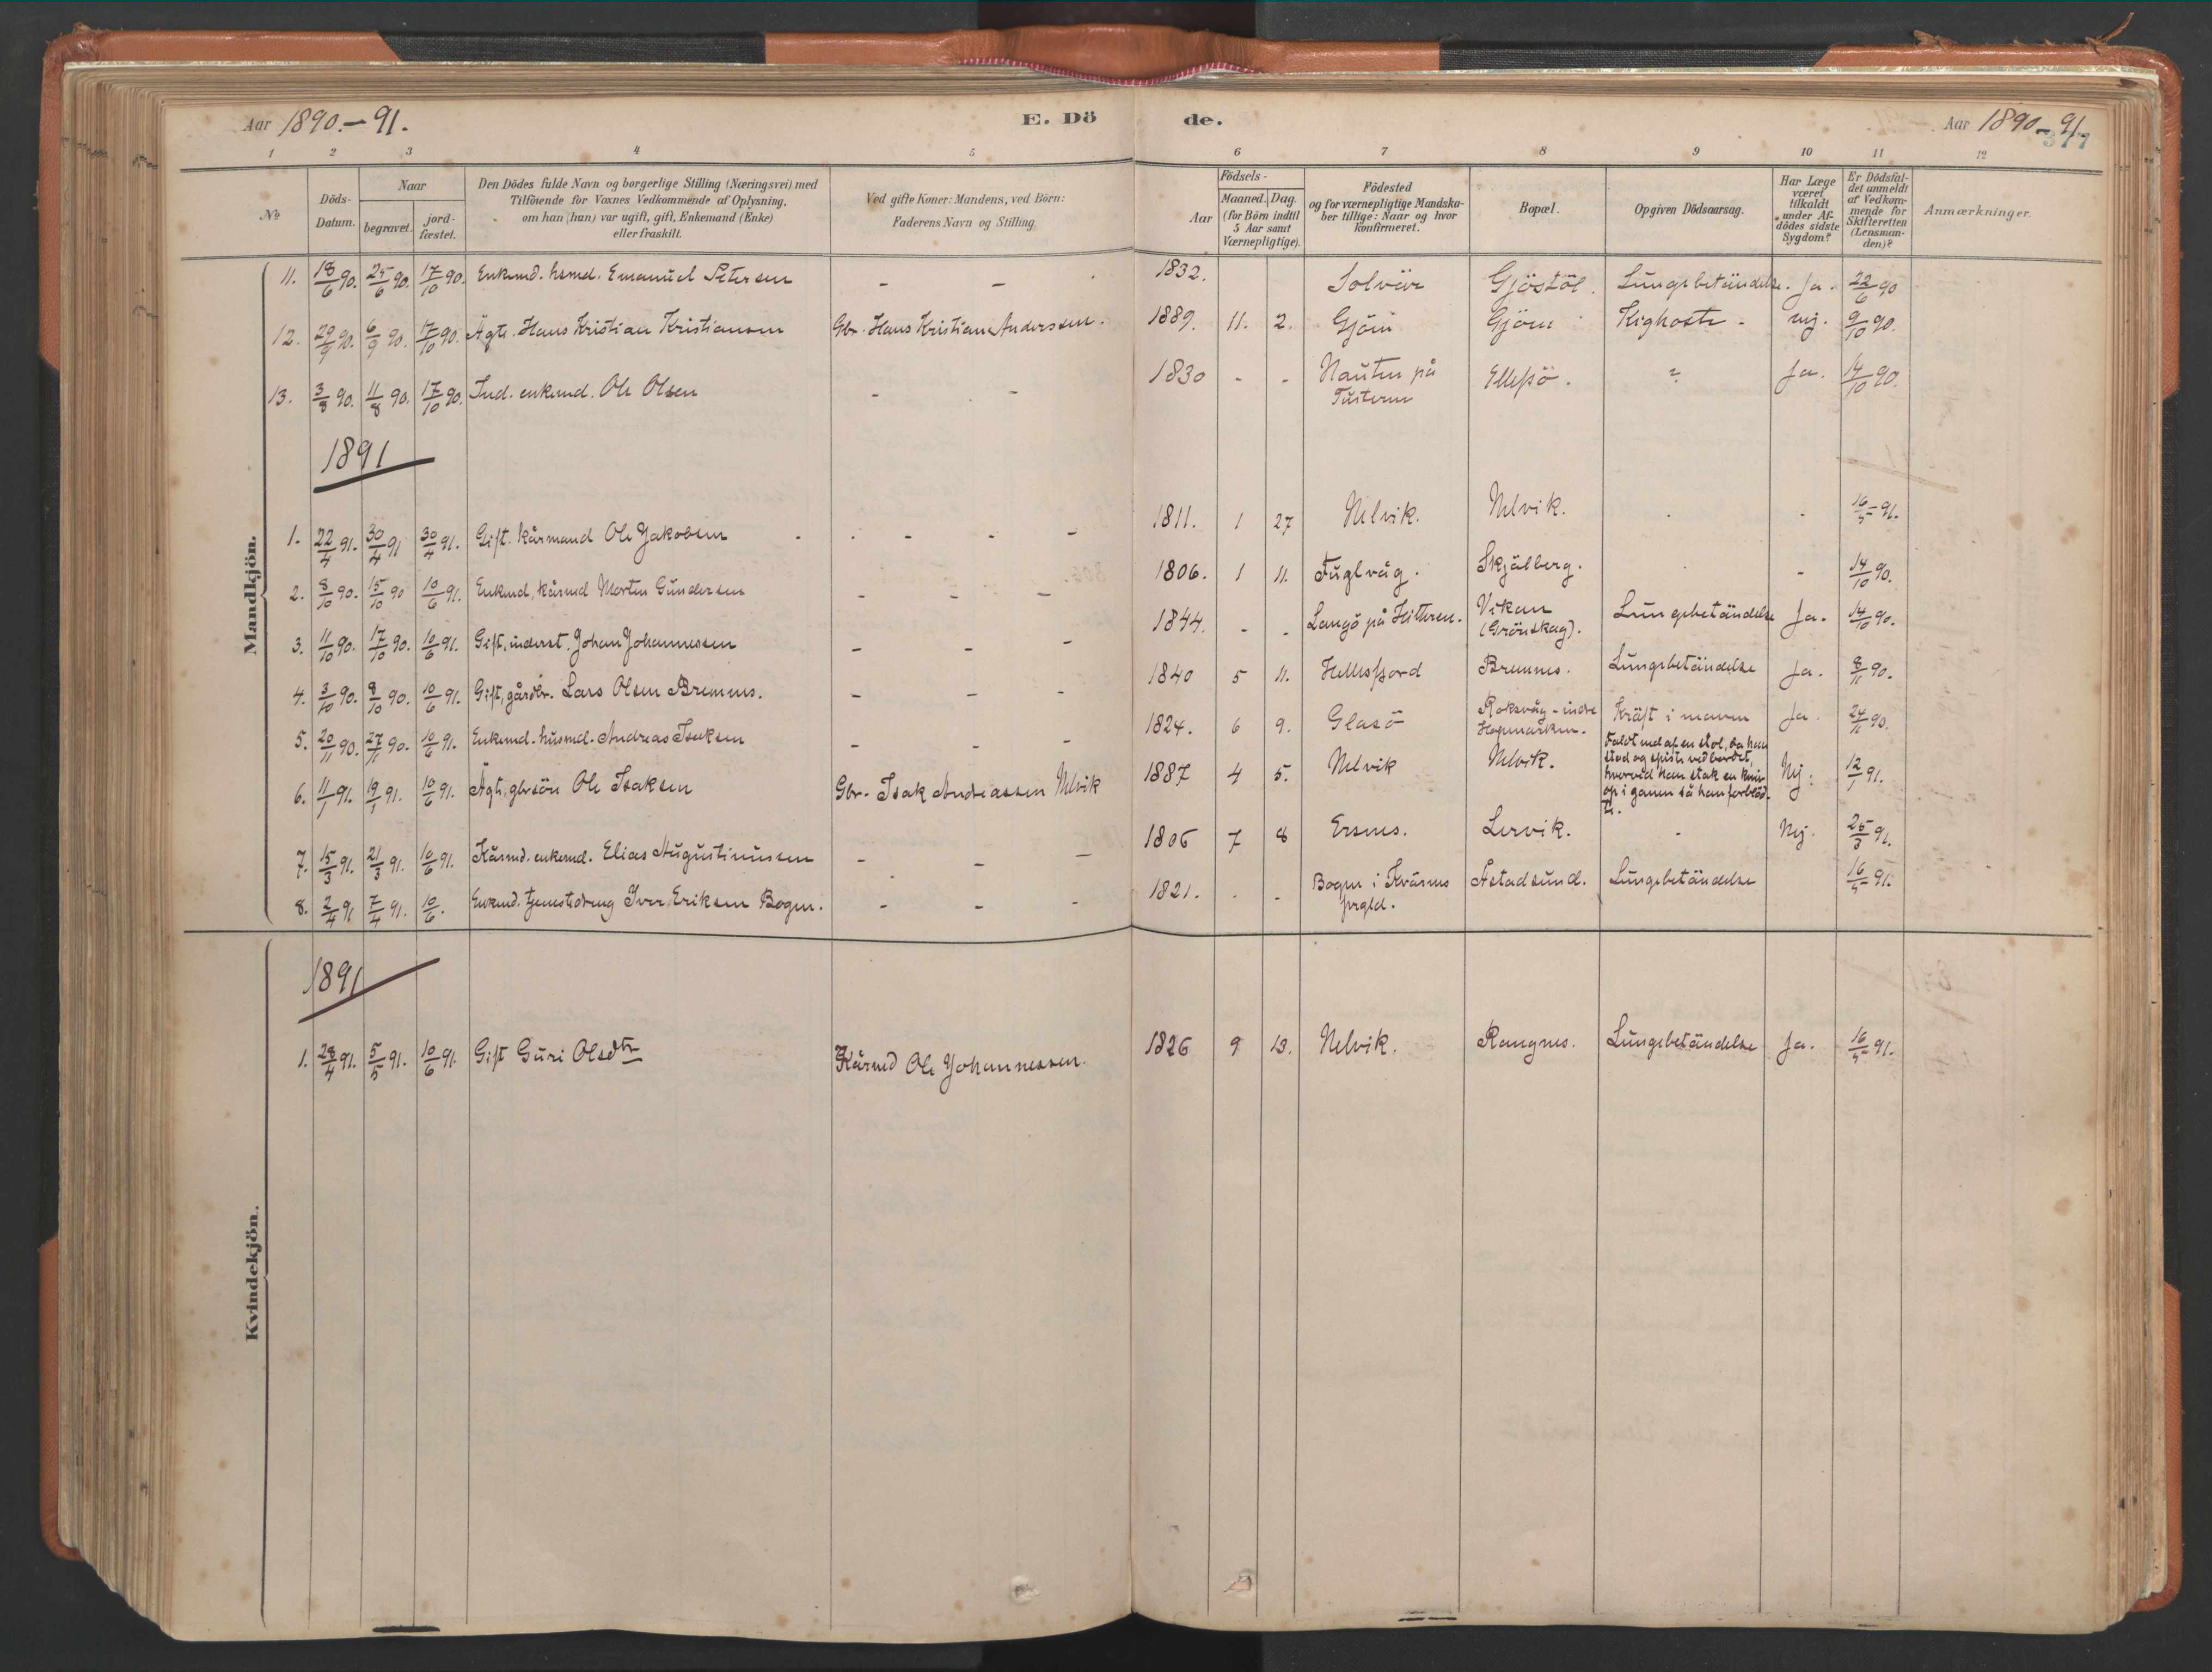 Aar 1890.-91. E. Dö de. Aar 1890-91
377
1 2 3 4 5 6 7 8 9 10 11 12
No
Döds-Datum.
Naar
begravet.
jord-fæstet.
Den Dödes fulde Navn og borgerlige Stilling (Næringsvei) med
Tilföiende for Voxnes Vedkommende af Oplysning,
om han (hun) var ugift, gift, Enkemand (Enke)
eller fraskilt.
Ved gifte Koner: Mandens, ved Börn:
Faderens Navn og Stilling.
Födsels-
Aar
Maaned. Dag.
(for Börn indtil
5 Aar samt
Værnepligtige).
Födested
og for værnepligtige Mandska-
ber tillige: Naar og hvor
konfirmeret.
Bopæl.
Opgiven Dödsaarsag.
Har Læge
været
tilkaldt
under Af-
dödes sidste
Sygdom?
Er Dödsfal-
det anmeldt
af Vedkom-
mende for
Skifteretten
(Lensman-
den)?
Anmærkninger.
Mandkjön.
11. 18/6 90. 25/6 90. 17/10 90. Enkemd. hsmd. Emanuel Petersen - - 1832. Solvär Gjöstöl. Lungebetändelse. Ja. 22/6 90
12. 29/9 90. 6/9 90. 17/10 90. Ägte. Hans Kristian Kristiansen Gbr. Hans Kristian Anderssen. 1889. 11. 2. Gjöen Gjöen Kighoste - nej. 9/10 90.
13. 3/8 90. 11/8 90. 17/10 90. Ind. enkemd. Ole Olsen - - 1830 - - Nauten på Ellefsö. ? Ja. 14/10 90.
Tusteren
1891
1. 22/4 91. 30/4 91 30/4 91. Gift. kårmand Ole Jakobsen - - - 1811. 1 27 Nelvik. Nelvik. . . 16/5 91.
2. 8/10 90. 15/10 90 10/6 91. Enkmd, kårmd Morten Gundersen - - - 1806. 1 11. Fuglvåg. Skjälberg. . - 14/10 90.
3. 11/10 90. 17/10 90. 10/6 91. Gift, inderst. Johan Johannessen - - - 1844. - - Langö på Hitteren. Vikan Lungebetändelse Ja. 14/10 90.
(Grönskag).
4. 3/10 90. 8/10 90. 10/6 91. Gift, gårdbr. Lars Olsen Bremnes. - - - 1840 5 11. Hellesfjord Bremnes. Lungebetändelse Ja. 8/11 90.
5. 20/11 90. 27/11 90. 10/6 91. Enkemd. husmd. Andreas Isaksen - - - 1824. 6 9. Glasö Roksvåg - indre Kräft i maven Ja 24/11 90.
Hopmarken.
6. 11/1 91. 19/1 91. 10/6 91. Ägte, gbrsön Ole Isaksen Gbr. Isak Andreassen Nelvik 1887 4 5. Nelvik Nelvik. Faldt ned af en stol, da han
stod og spiste ved bordet,
hvorved han stak en kniv
op i ganen så han forblöd.
te. Nej. 12/1 91.
7. 15/3 91. 21/3 91. 10/6 91. Kårmd. enkemd. Elias Augustinussen - - - 1806 7 8 Ersnes. Lervik. - Nej. 25/3 91.
8. 2/4 91 7/4 91. 10/6. Enkmd. tjenestedreng Iver Eriksen Bogen. - - - 1821. . - Bogen i Kvärnes Åstadsund. Lungebetändelse 16/5 91.
prgld.
Kvindekjön.
1891
1. 28/4 91. 5/5 91. 10/6 91. Gift Guri Olsdtr Kårmd Ole Johannessen. 1826 9 13. Nelvik. Rangnes. Lungebetändelse Ja. 16/5 91.